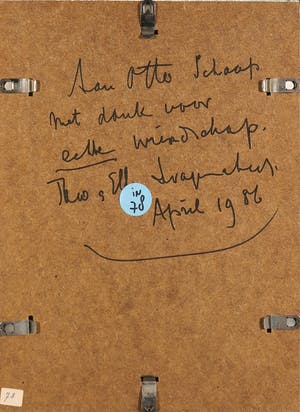 Aan Otto Schaap
met dank voor
echte vriendschap.
Theo & Ell
in
78
April 1986
78